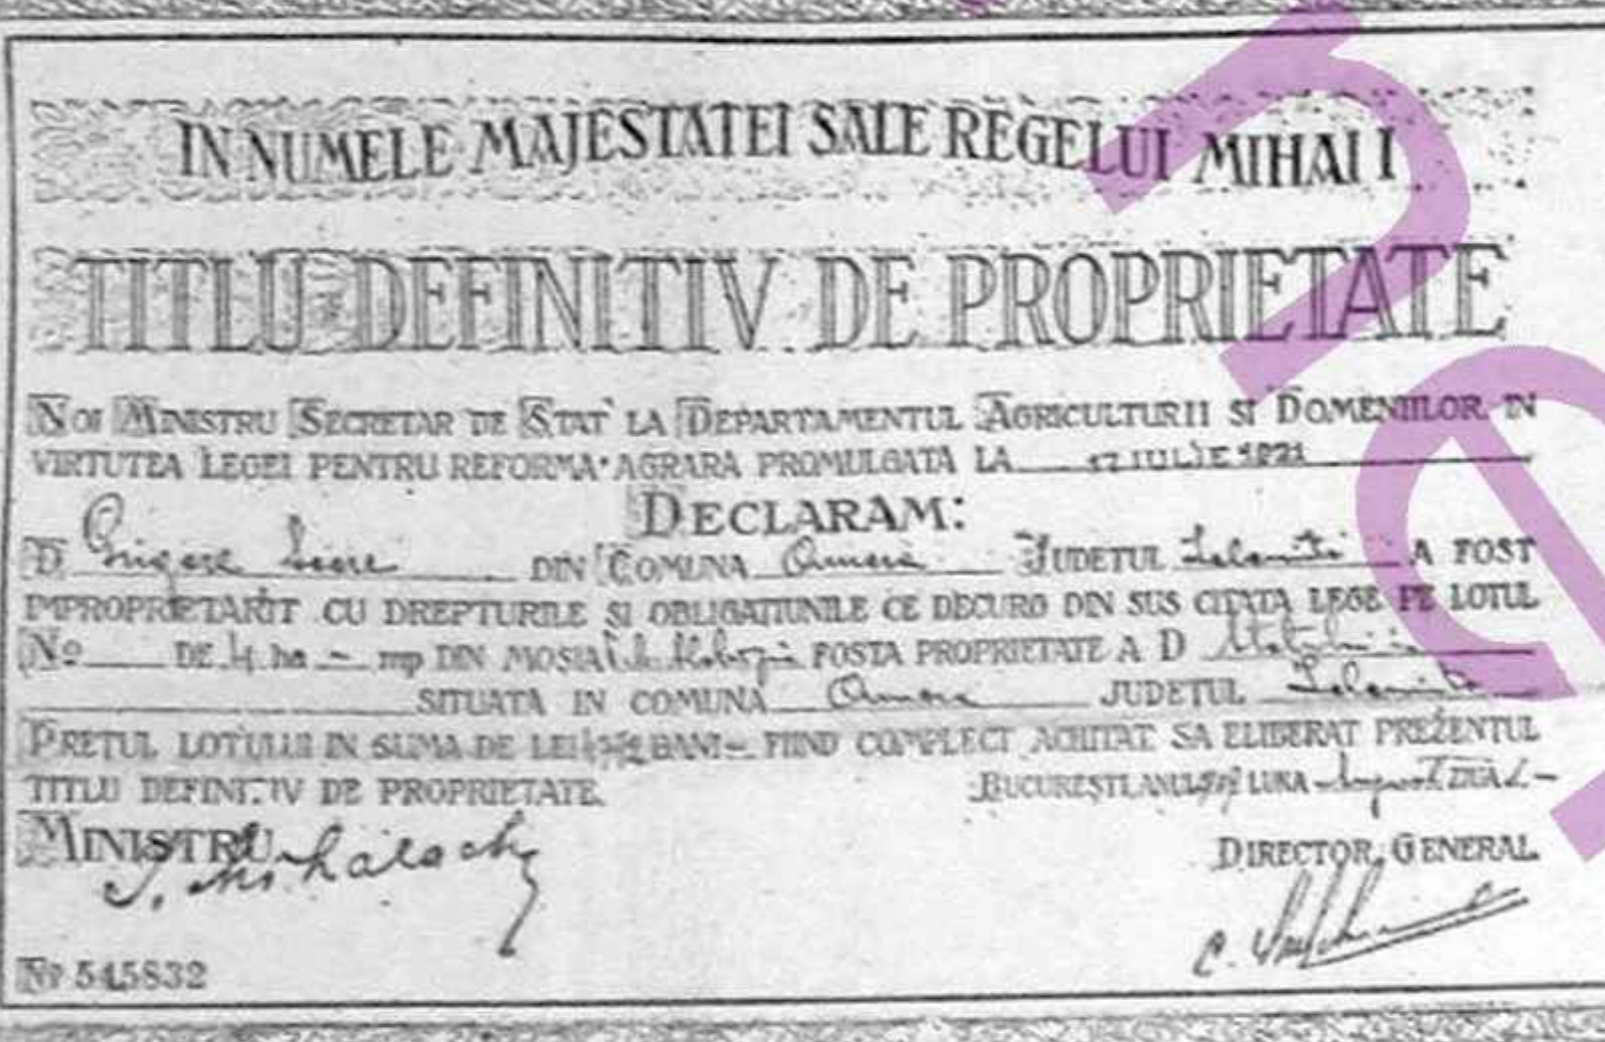 IN NUMELE MAJESTATEI SALE REGELUI MIHAI I
TITLU DEFINITIV DE PROPRIETATE
NOI MINISTRU SECRETAR DE STAT LA DEPARTAMENTUL AGRICULTURII SI DOMENIILOR IN
VIRTUTEA LEGEI PENTRU REFORMA AGRARA PROMULGATA LA 17 IULIE 1921
DECLARAM:
D Grigore DIN COMUNA Amara JUDETUL Ialomita A FOST
IMPROPRIETARIT CU DREPTURILE SI OBLIGATIUNILE CE DECURG DIN SUS CITATA LEGE PE LOTUL
No DE 4 ha - mp DIN MOSIA FOSTA PROPRIETATE A D
SITUATA IN COMUNA Amara JUDETUL Ialomita
PRETUL LOTULUI IN SUMA DE LEI BANI - FIIND COMPLECT ACHITAT SA ELIBERAT PREZENTUL
TITLU DEFINITIV DE PROPRIETATE.
BUCUREȘTI, ANUL LUNA August ZIUA
MINISTRU
I. Mihalache
DIRECTOR GENERAL
C.
No 545832